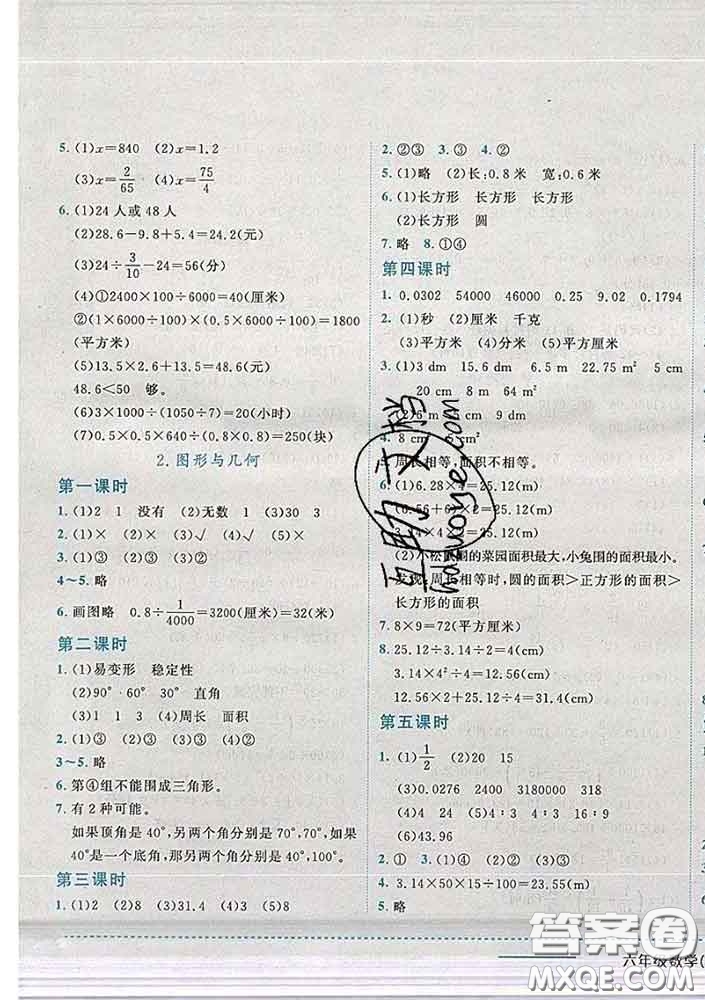 5. (1)x=840 (2)x=1.2
(3)x=2/65 (4)x=75/4
6. (1)24 人或 48 人
(2)28.6-9.8+5.4=24.2(元)
(3)24÷3/10-24=56(分)
(4)①2400×100÷6000=40(厘米)
②(1×6000÷100)×(0.5×6000÷100)=1800
(平方米)
(5)13.5×2.6+13.5=48.6(元)
48.6<50 够。
(6)3×1000÷(1050÷7)=20(小时)
(7)0.5×0.5×90÷(0.3×0.3)=250(块)
2. 图形与几何
第一课时
1. (1)2 1 没有 (2)无数 1 (3)30 3
2. (1)× (2)× (3)√ (4)√ (5)×
3. (1)③ (2)③ (3)①
4~5. 略
6. 画图略 0.8÷1/4000=3200(厘米)=32(米)
第二课时
1. (1)易变形 稳定性
(2)90°·60° 30° 直角
(3)1 1 3 (4)周长 面积
2. (1)③ (2)③ (3)① (4)③
3~5. 略
6. 第④组不能围成三角形。
7. 有 2 种可能。
如果顶角是 40°,另两个角分别是 70°,70°;如果
40°是一个底角,那另两个角分别是 40°,100°。
第三课时
1. (1)2 (2)8 (3)31.4 (3)5 (4)3 (5)8
2. ②③ 3. ③ 4. ②
5. (1)略 (2)长:0.8 米 宽:0.6 米
6. (1)长方形 长方形 长方形
(2)长方形 圆
7. 略 8. ①④
第四课时
1. 0.0302 54000 46000 0.25 9.02 0.1794
2. (1)秒 (2)厘米 千克
(3)平方厘米 (4)分米 (5)平方米
3. (1)3 dm 15 dm 6.5 m 22.75 m²
20 cm 8 m 64 m²
(2)6 m 5 cm 9 dm
4. 8 cm 5
5. 周长相等,面积不相等。
6. (1)6.28×4=25.12(m)
(6.56+6)×2=25.12(m)
3.14×4×2=25.12(m)
(2)小松鼠围的菜园面积最大,小兔围的面积最小。
发现:周长相等时,圆的面积>正方形的面积>
长方形的面积
7. 8×9=72(平方厘米)
8. 25.12÷3.14÷2=4(cm)
3.14×4²÷4=12.56(cm)
12.56×2+25.12÷4=31.4(cm)
第五课时
1. (1)1/2 (2)20 15
(3)0.0276 2400 3180000 318
(4)4 24 (5)4∶9 4∶9
(6)43.96
2. ① 3. (1)④ (2)② (3)③
4. 3.14×50×15÷100=23.55(m)
5. 略
互助文档
hdzuoye.com
答案圈
MXQE.COM
六年级数学(